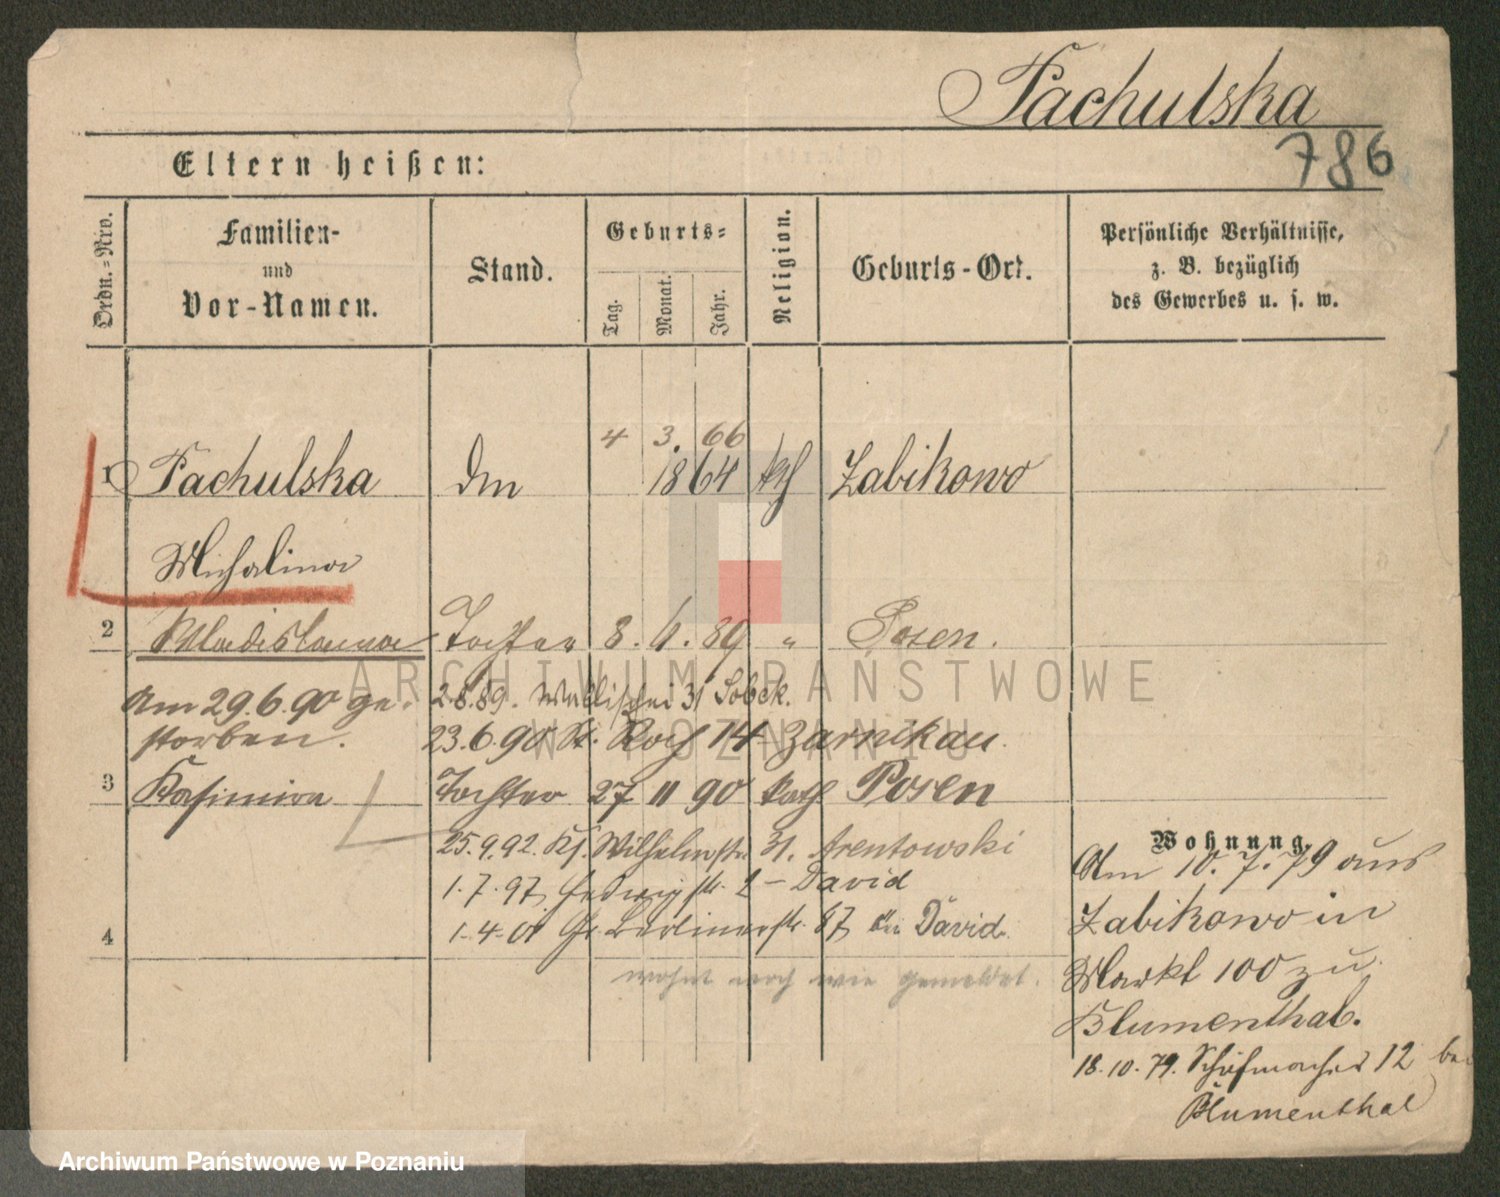 Pachulska
786
Eltern heißen:
Ordn.-Nro.
Familien-
und
Vor-Namen.
Stand.
Geburts-
Tag.
Monat.
Jahr.
Religion.
Geburts-Ort.
Persönliche Verhältnisse,
z. B. bezüglich
des Gewerbes u. s. w.
4 3. 66
1 Pachulska 1864 kth Zabikowo
Michalina
2 Wladislawa Tochter 8. 4. 89 " Posen.
Am 29.6.90 ge-
storben.
2.8.89. Wallischei 31 Sobek.
23.6.90 St. Roch 14 Zarnikau.
3 Kasimira Tochter 27 11 90 kath Posen
25.9.92. Wilhelmstr. 31. Arentowski
1.7.97 Hedwigstr. 2 - David
4
1.4.01 Gr. Berlinerstr. 67 bei David.
wohnt noch wie gemeldet.
Wohnung.
Am 10.7.79 aus
Zabikowo in
Markt 100 zu
Blumenthal.
18.10.79. Schuhmacher 12 bei
Blumenthal
ARCHIWUM PAŃSTWOWE
W POZNANIU
Archiwum Państwowe w Poznaniu